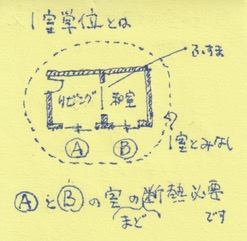 1室単位とは
ふすま
リビング
和室
A
B
1室とみなし
AとBの窓の断熱必要
まど
です